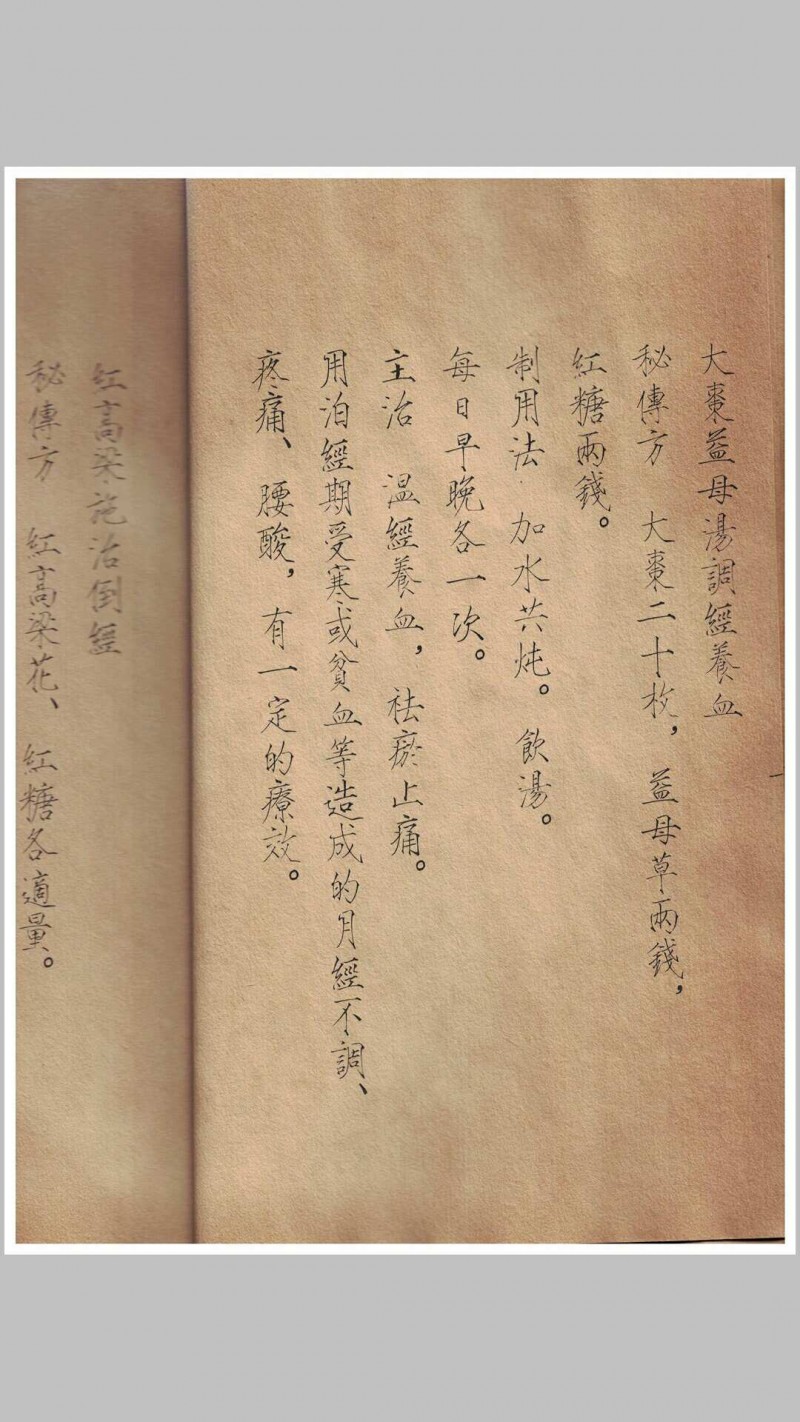 大棗益母湯調經養血
秘傳方　大棗二十枚，益母草兩錢，
紅糖兩錢。
制用法　加水共炖。飲湯。
每日早晚各一次。
主治　溫經養血，祛瘀止痛。
用泊經期受寒或貧血等造成的月經不調、
疼痛、腰酸，有一定的療效。
红高梁花治倒經
秘傳方　紅高梁花、紅糖各適量。